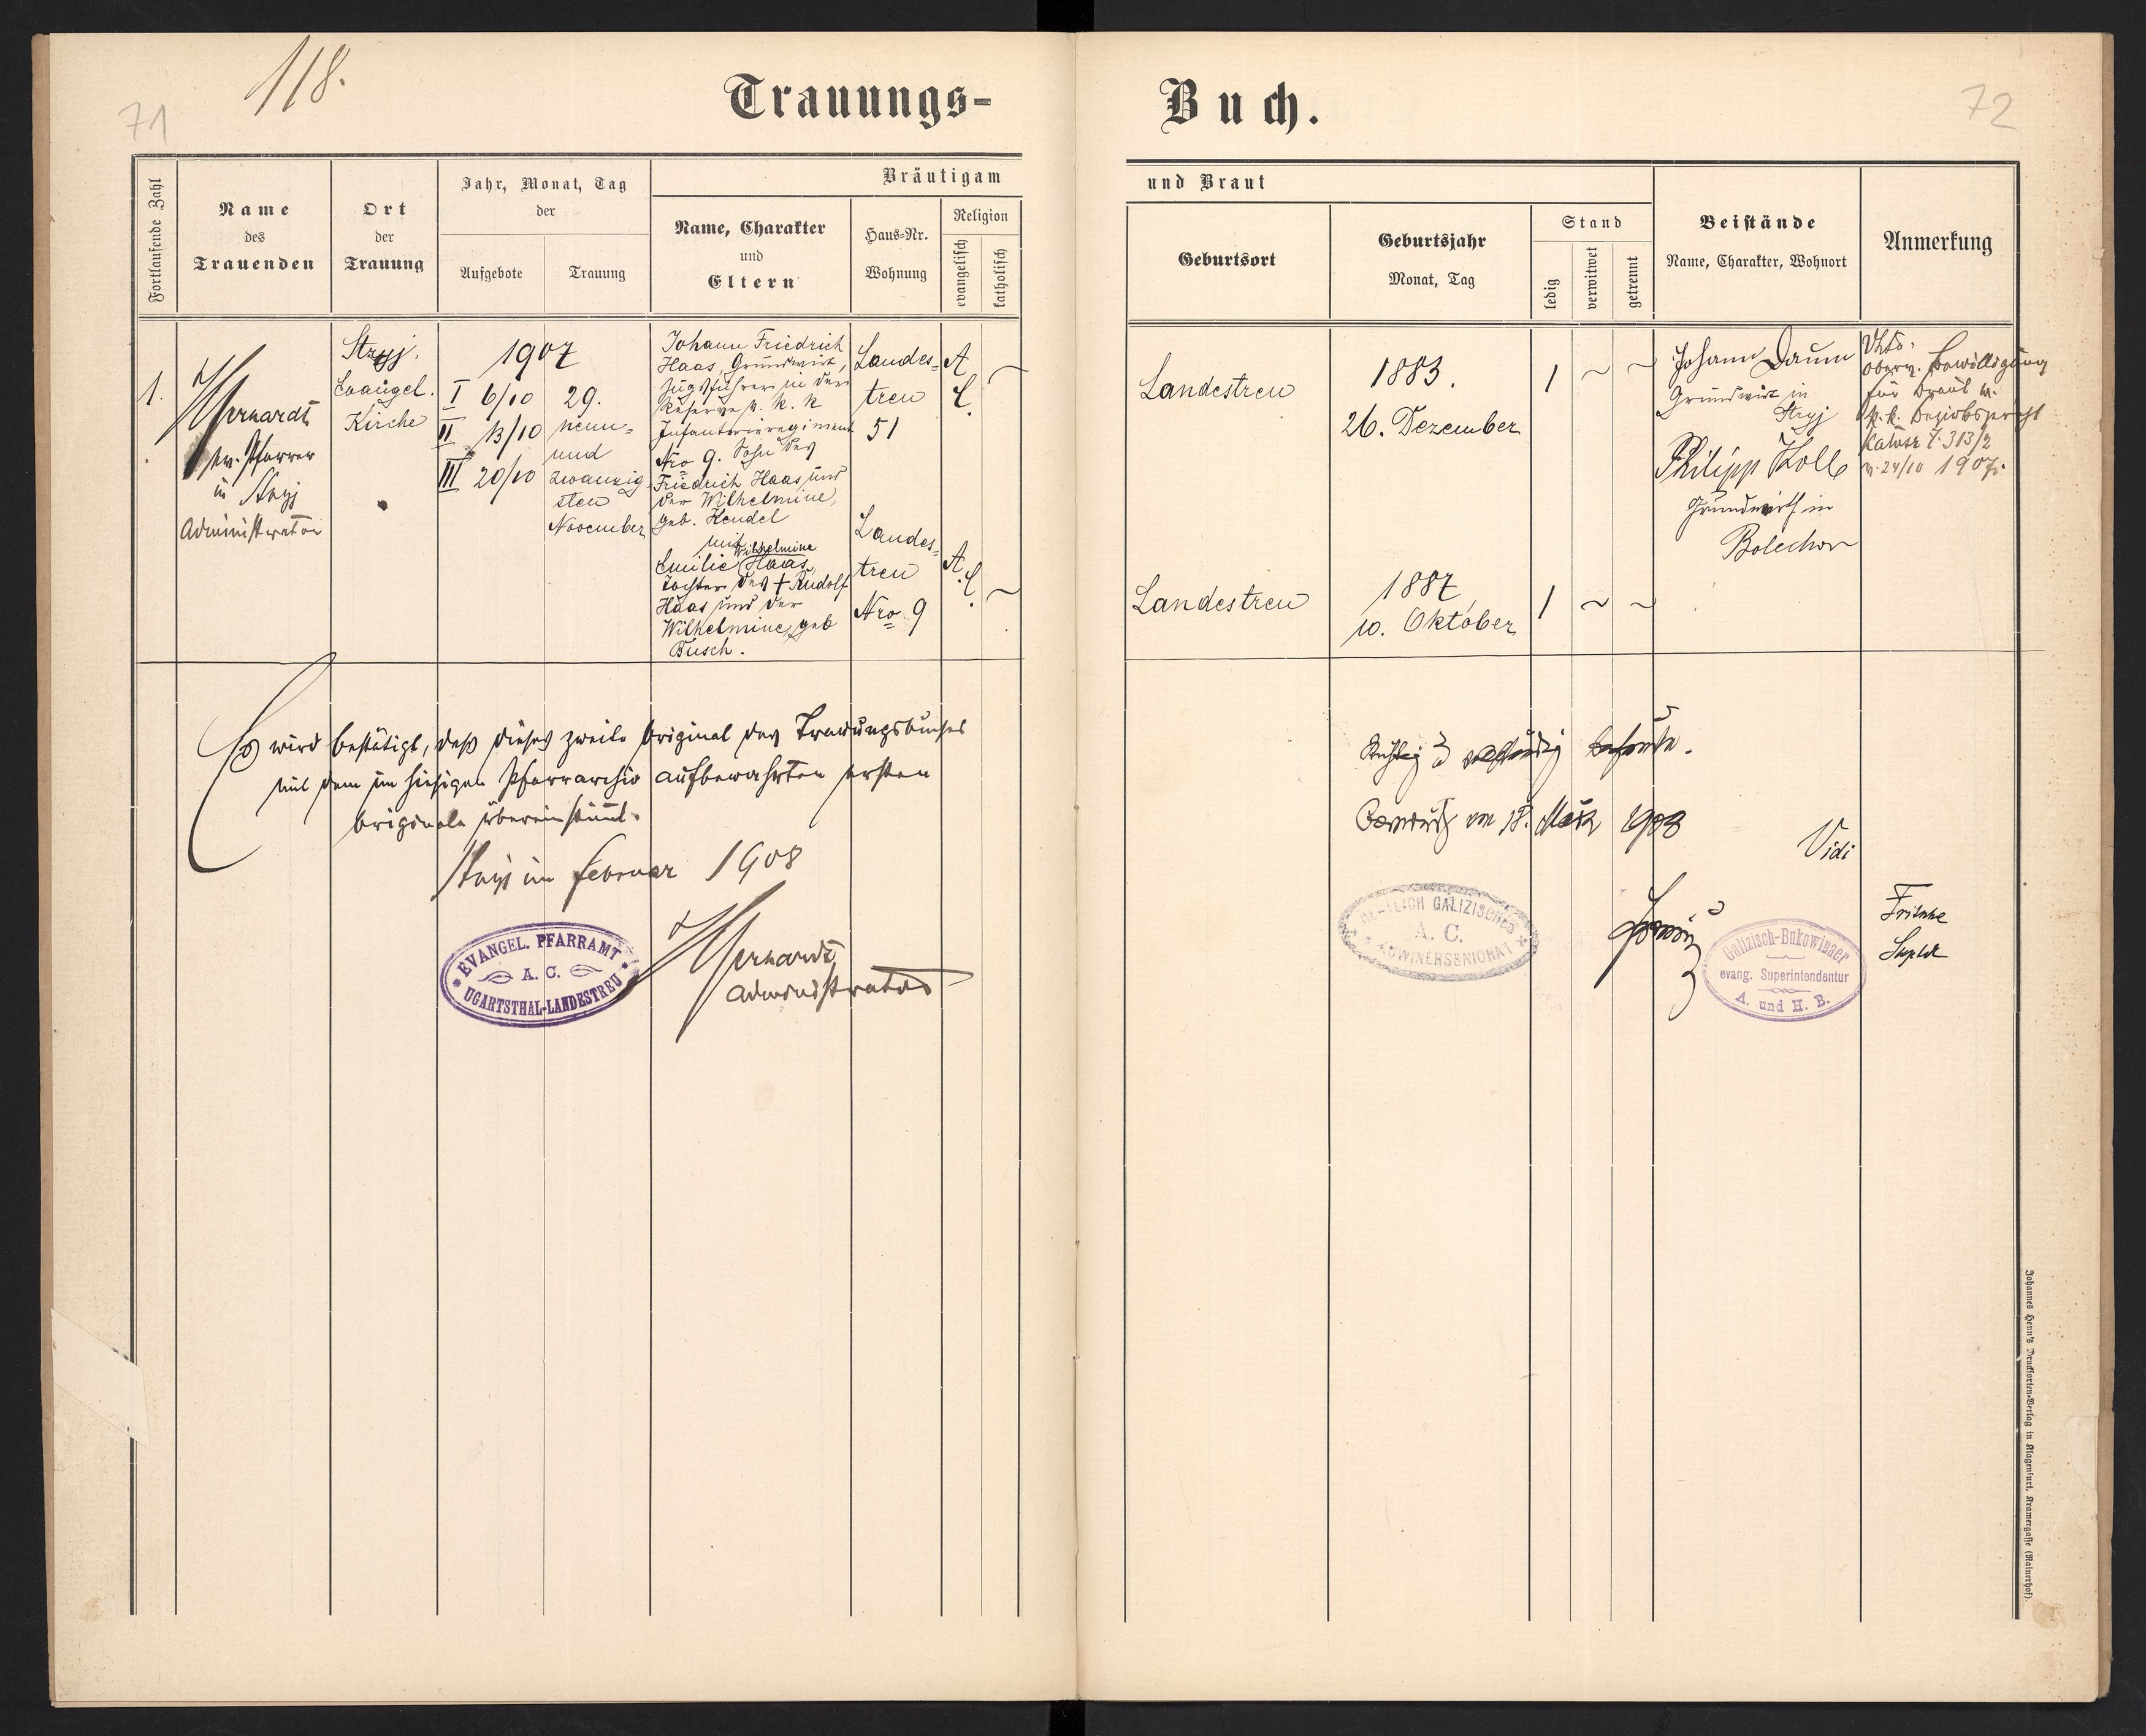 118.
71
72
Trauungs-
Buch.
Fortlaufende Zahl
Name
des
Trauenden
Ort
der
Trauung
Jahr, Monat, Tag
der
Aufgebote
Trauung
Bräutigam
Name, Charakter
und
Eltern
Haus-Nr.
Wohnung
Religion
evangelisch
katholisch
und Braut
Geburtsort
Geburtsjahr
Monat, Tag
Stand
ledig
verwitwet
getrennt
Beistände
Name, Charakter, Wohnort
Anmerkung
1.
ev. Pfarrer
in Stryj
Administrator
Stryj.
Evangel.
Kirche
1907
I 6/10
II 13/10
III 20/10
29.
neun-
und
zwanzig
sten
November
Johann Friedrich
Haas, Grundwirt,
Zugsführer in der
Reserve d. k. k
Infanterieregiment
Nro 9. Sohn des
Friedrich Haas und
der Wilhelmine,
geb. Hendel
mit
Wilhelmine
Emilie Haas,
Tochter des † Rudolf
Haas und der
Wilhelmine, geb
Busch.
Landes-
treu
51
Landes-
treu
Nro 9
A
C.
A.
C.
Landestreu
1883.
26. Dezember
1
~
~
Landestreu
1887
10. Oktober
1
~
~
Johann Daum
Grundwirt in
Stryj
Philipp Kolb
Grundwirth in
Bolechow
für Braut v.
k. k. Bezirksgericht
Kalusz Z. 313/2
v. 24/10 1907.
Es wird bestätigt, daß dieses zweite Original des Trauungsbuches
mit dem im hiesigen Pfarrarchiv aufbewahrten ersten
Originale übereinstimmt.
Stryj im Februar 1908
EVANGEL. PFARRAMT
A. C.
UGARTSTHAL-LANDESTREU
Administrator
Richtig & vollständig befunden.
18. März 1908
Vidi
GALIZISCHES
A. C.
Fritsche
Suptdt
Galizisch-Bukowinaer
evang. Superintendentur
A. und H. B.
Johannes Heyn's Drucksorten-Verlag in Klagenfurt, Kramergasse (Rainerhof).